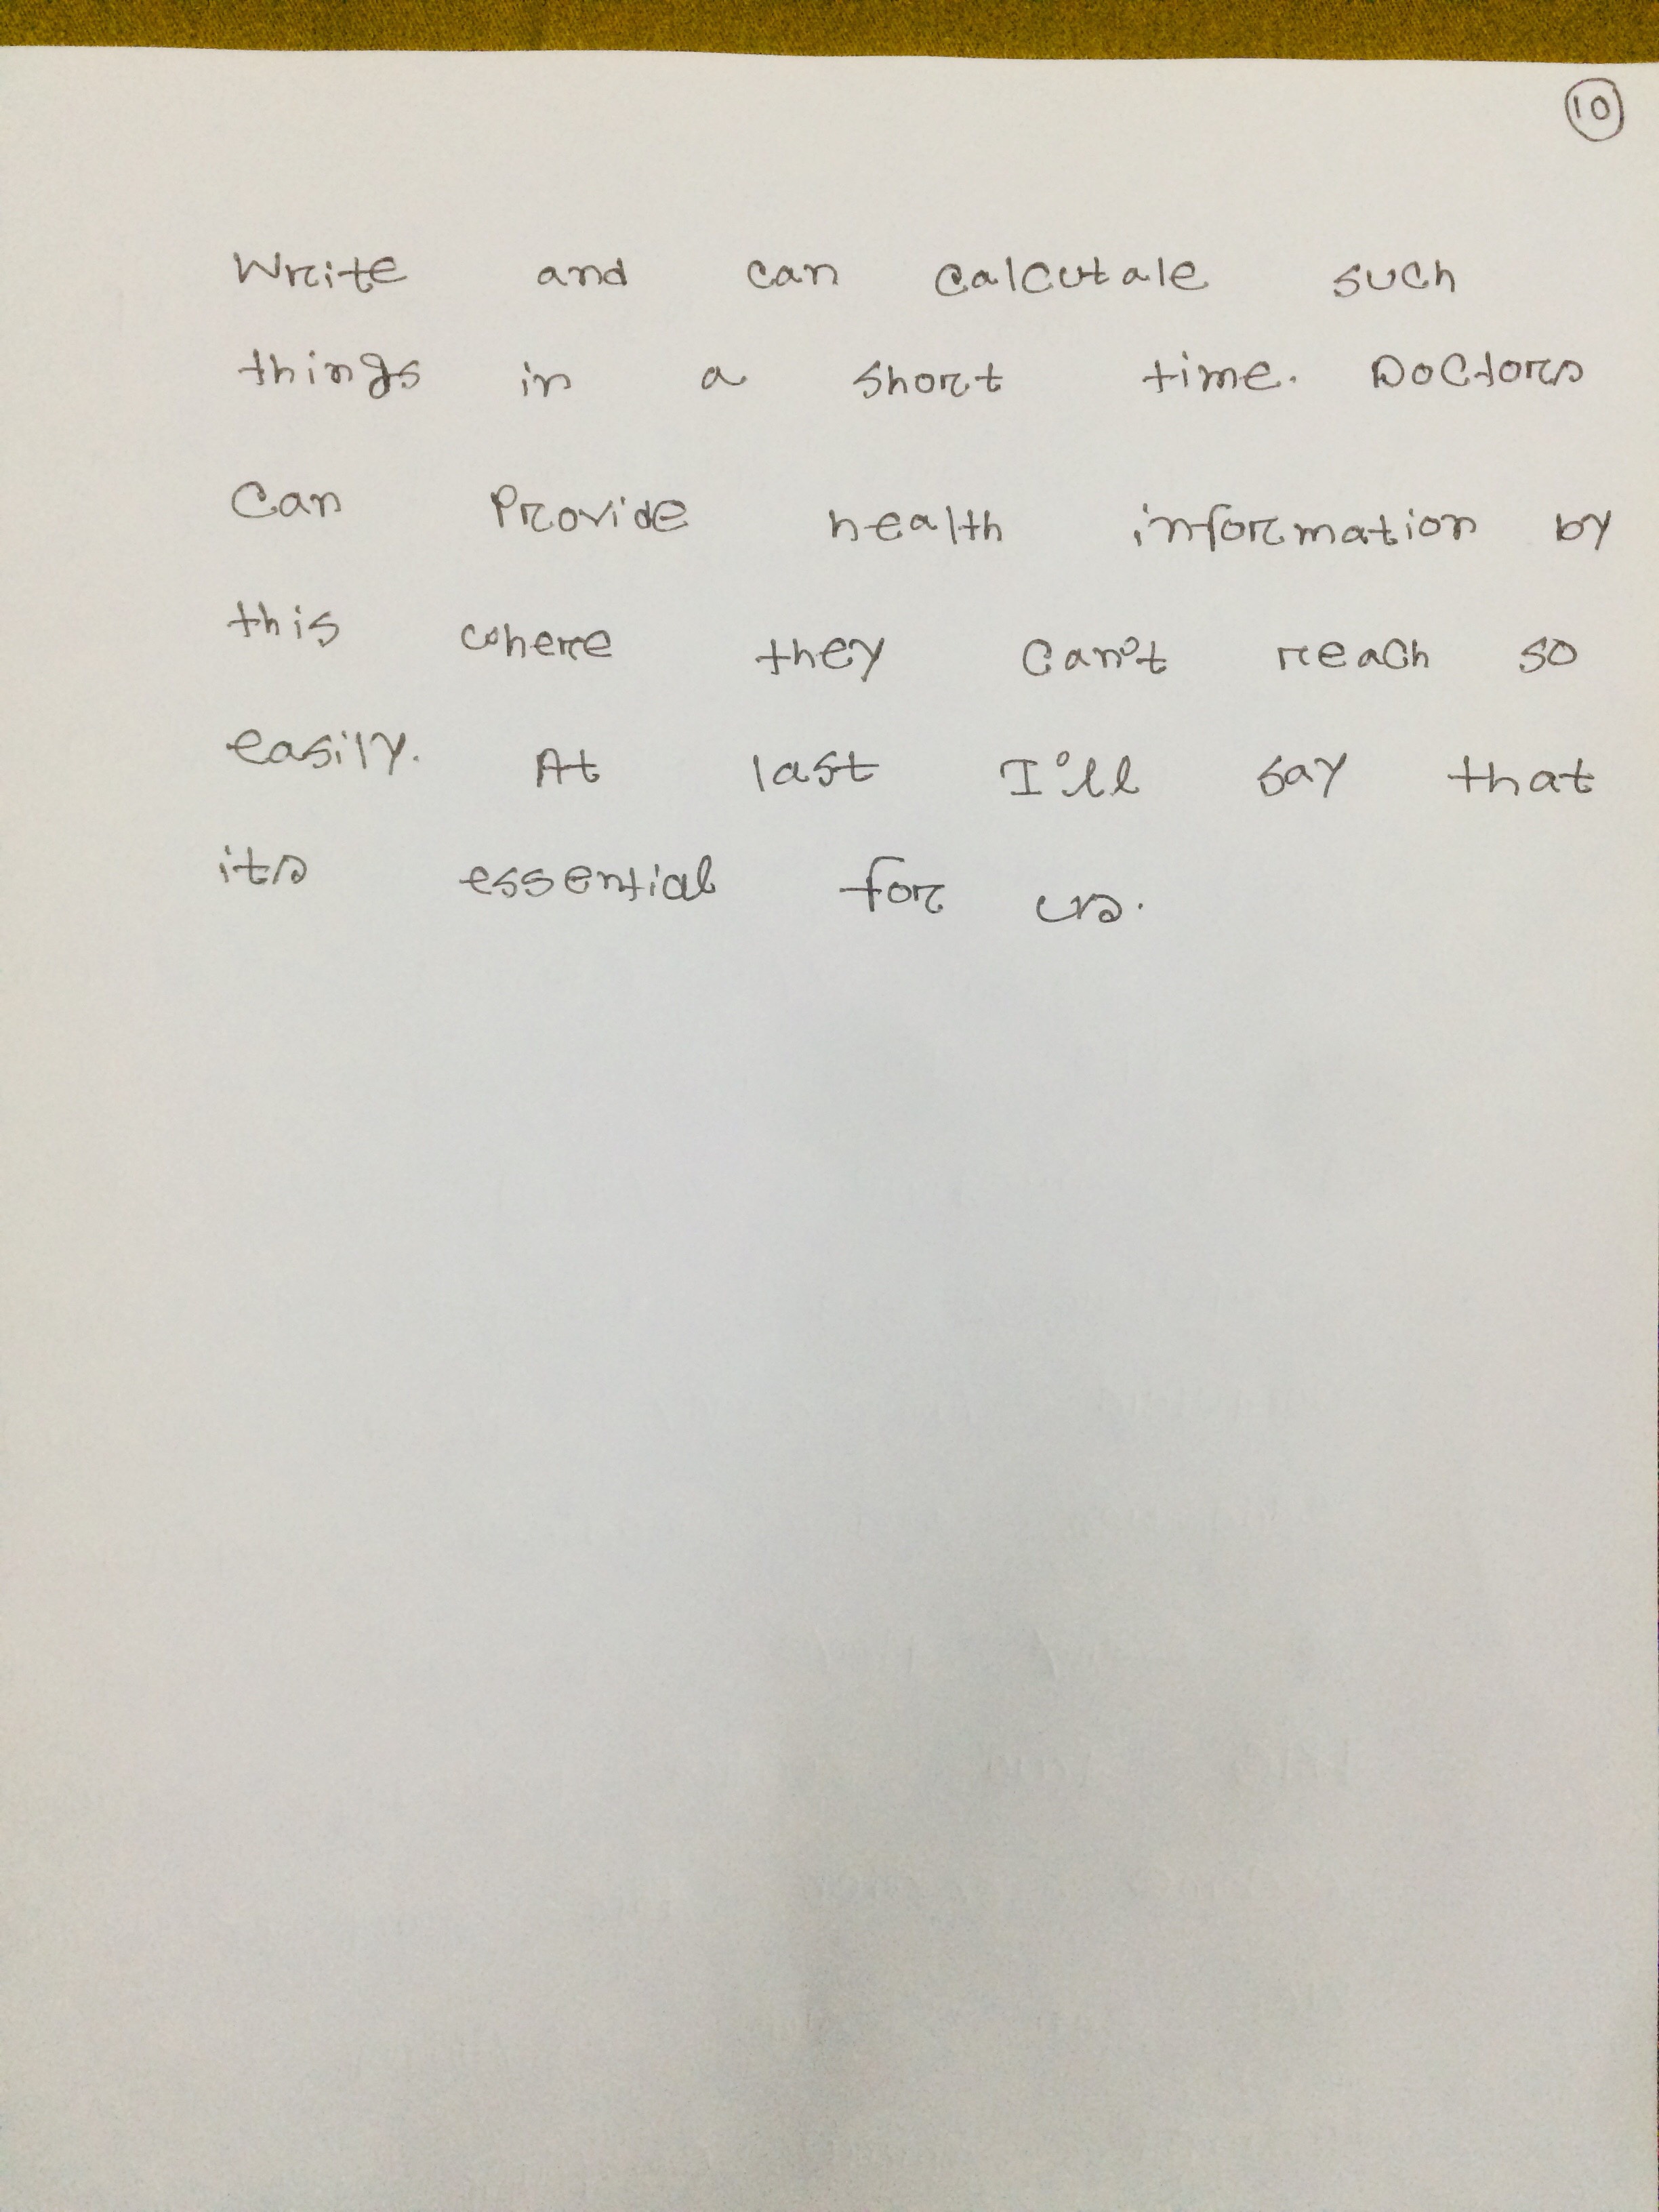 10
Write and can calcutale such
things in a short time. Doctors
Can Provide health information by
this where they can't reach so
easily. At last I'll say that
its essential for us.